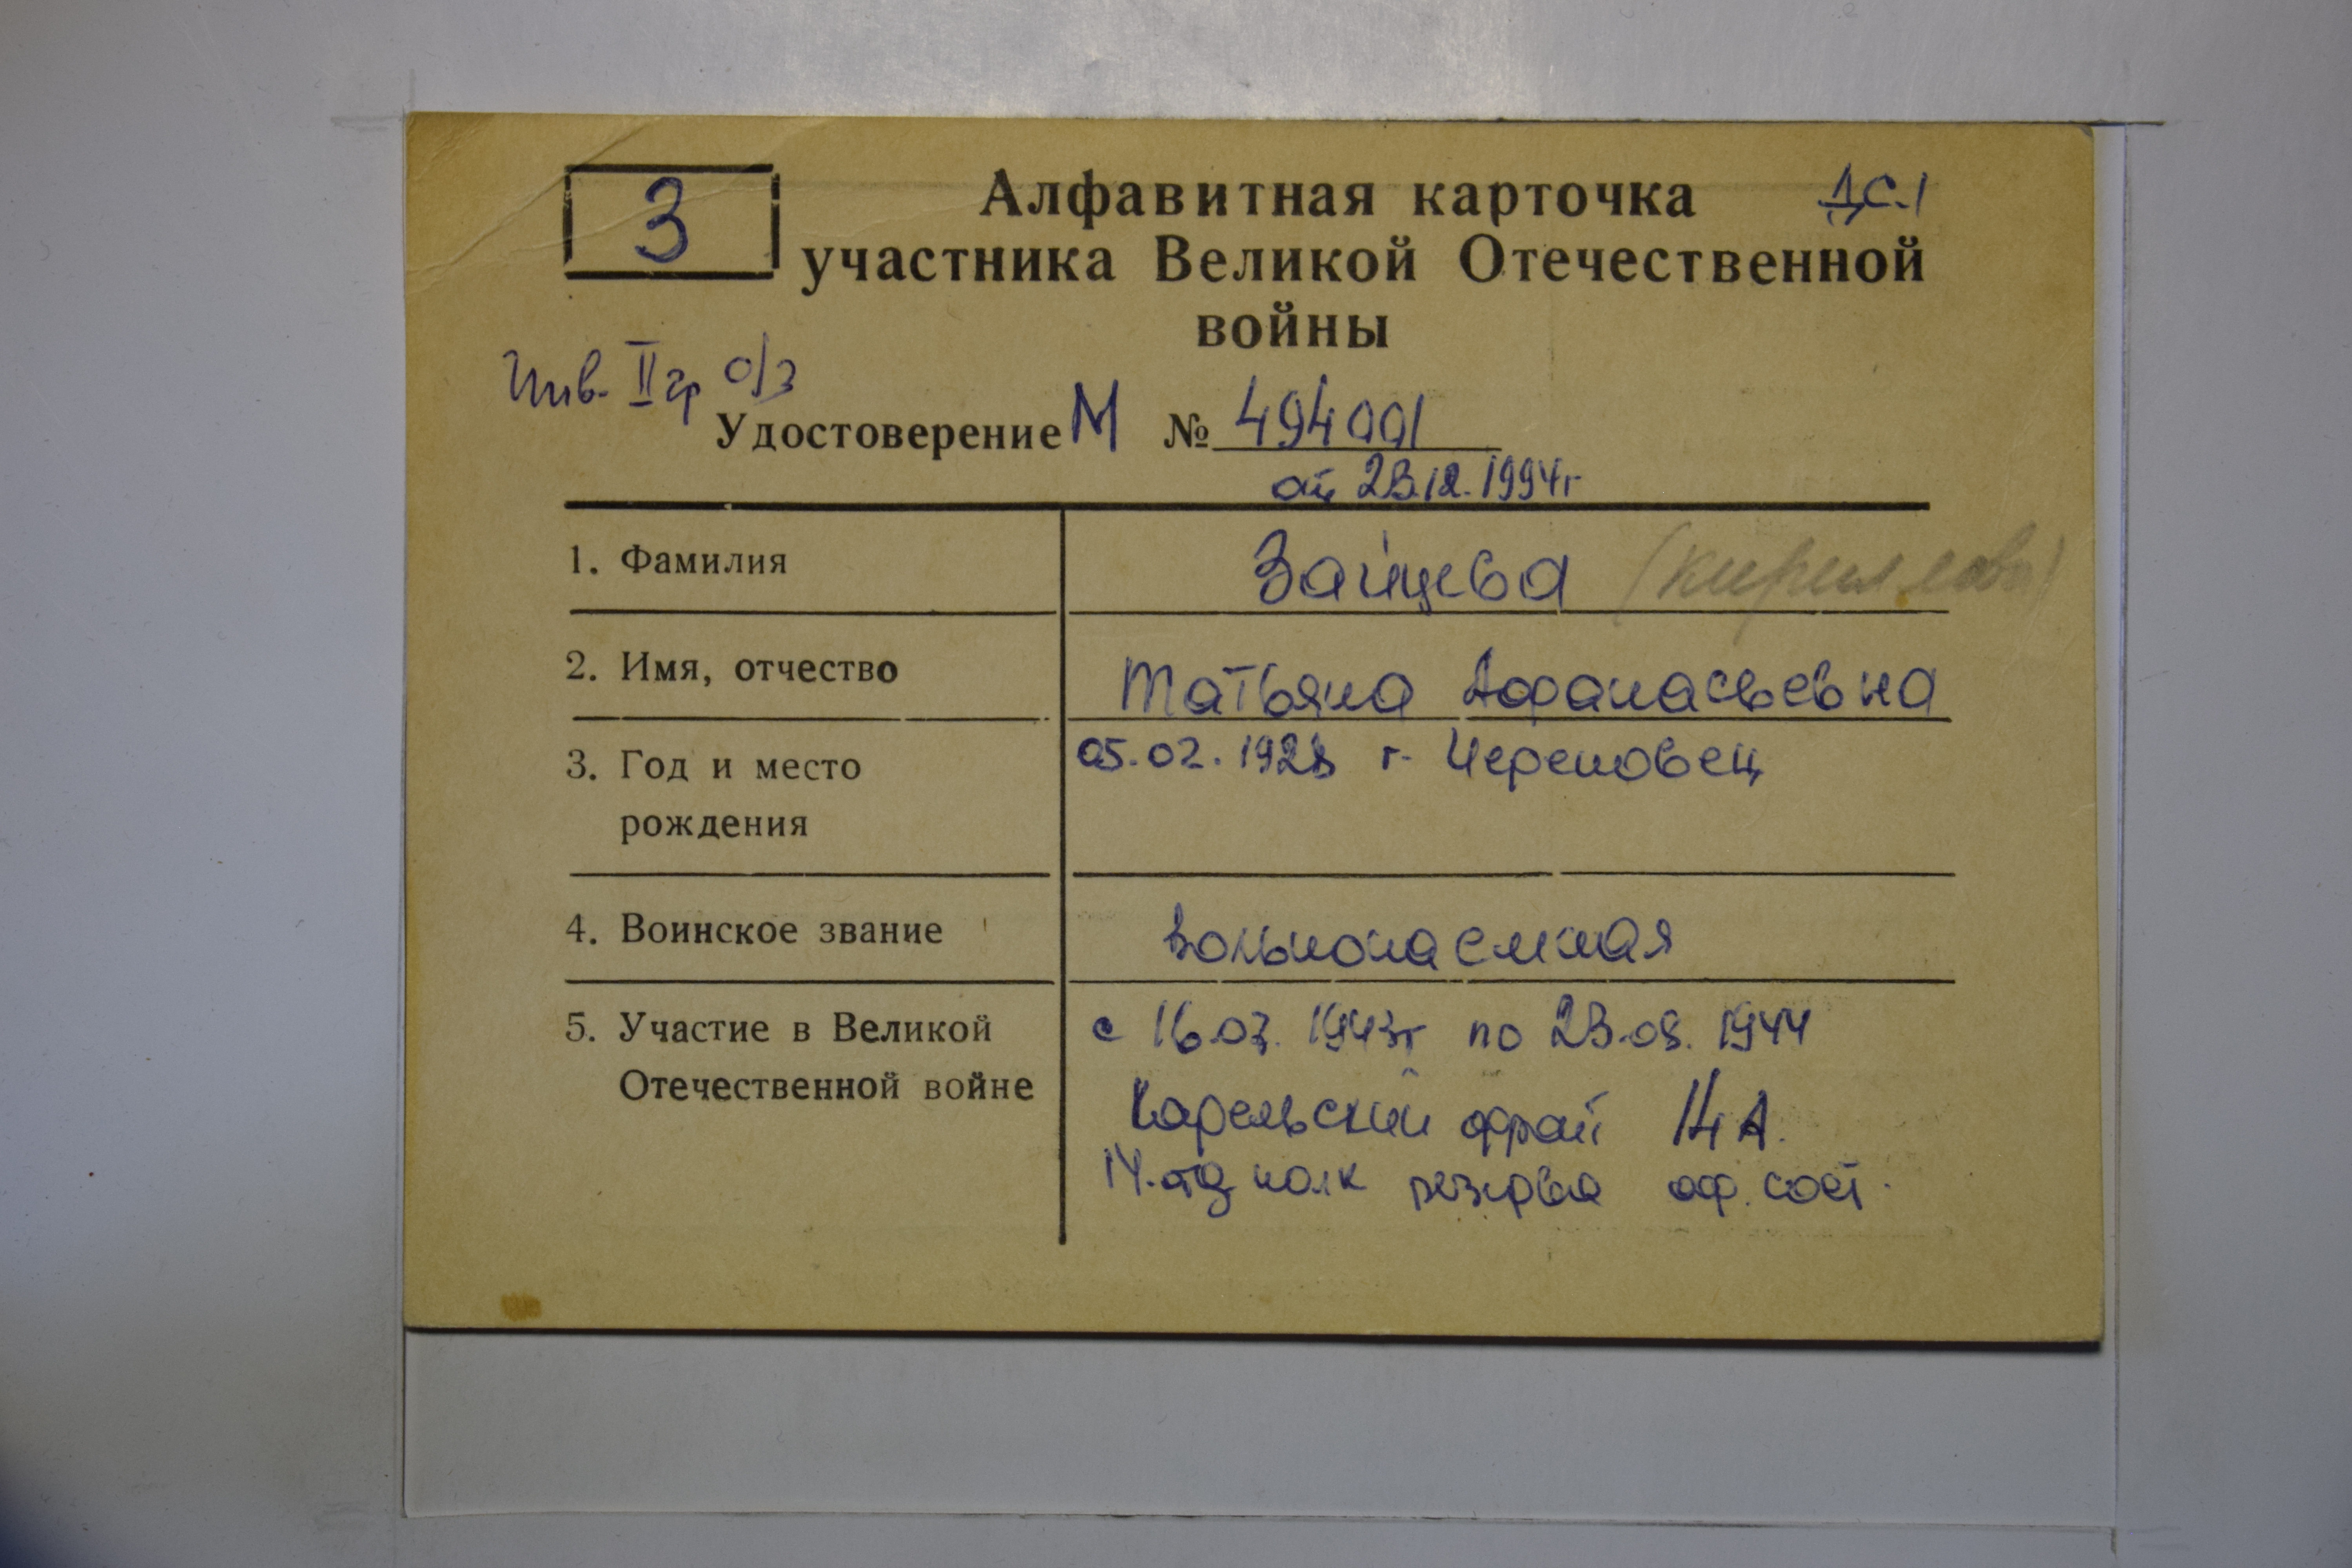 З
Алфавитная карточка
ДС.1
участника Великой Отечественной
войны
Инв. II гр о/з
Удостоверение М № 494001
от 23.12.1994г
1. Фамилия Зайцева (Кириллова)
2. Имя, отчество Татьяна Афанасьевна
3. Год и место 05.02.1928 г. Череповец
рождения
4. Воинское звание вольнонаемная
5. Участие в Великой с 16.07. 1943г по 23.08. 1944
Отечественной войне Карельский фронт 14 А.
14. отд полк резерва оф. сост.